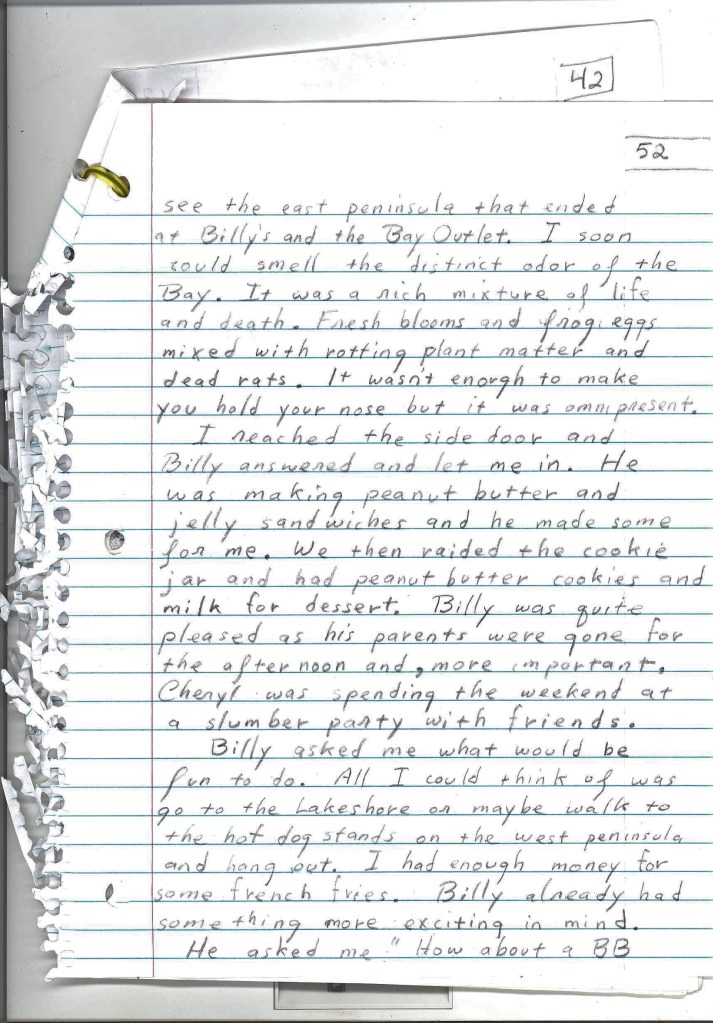 42
52
see the east peninsula that ended
at Billy's and the Bay Outlet. I soon
could smell the distinct odor of the
Bay. It was a rich mixture of life
and death. Fresh blooms and frog eggs
mixed with rotting plant matter and
dead rats. It wasn't enorgh to make
you hold your nose but it was omnipresent.
I reached the side door and
Billy answered and let me in. He
was making peanut butter and
jelly sandwiches and he made some
for me. We then raided the cookie
jar and had peanut butter cookies and
milk for dessert. Billy was quite
pleased as his parents were gone for
the afternoon and, more important,
Cheryl was spending the weekend at
a slumber party with friends.
Billy asked me what would be
fun to do. All I could think of was
go to the Lakeshore or maybe walk to
the hot dog stands on the west peninsula
and hang out. I had enough money for
some french fries. Billy already had
something more exciting in mind.
He asked me "How about a BB